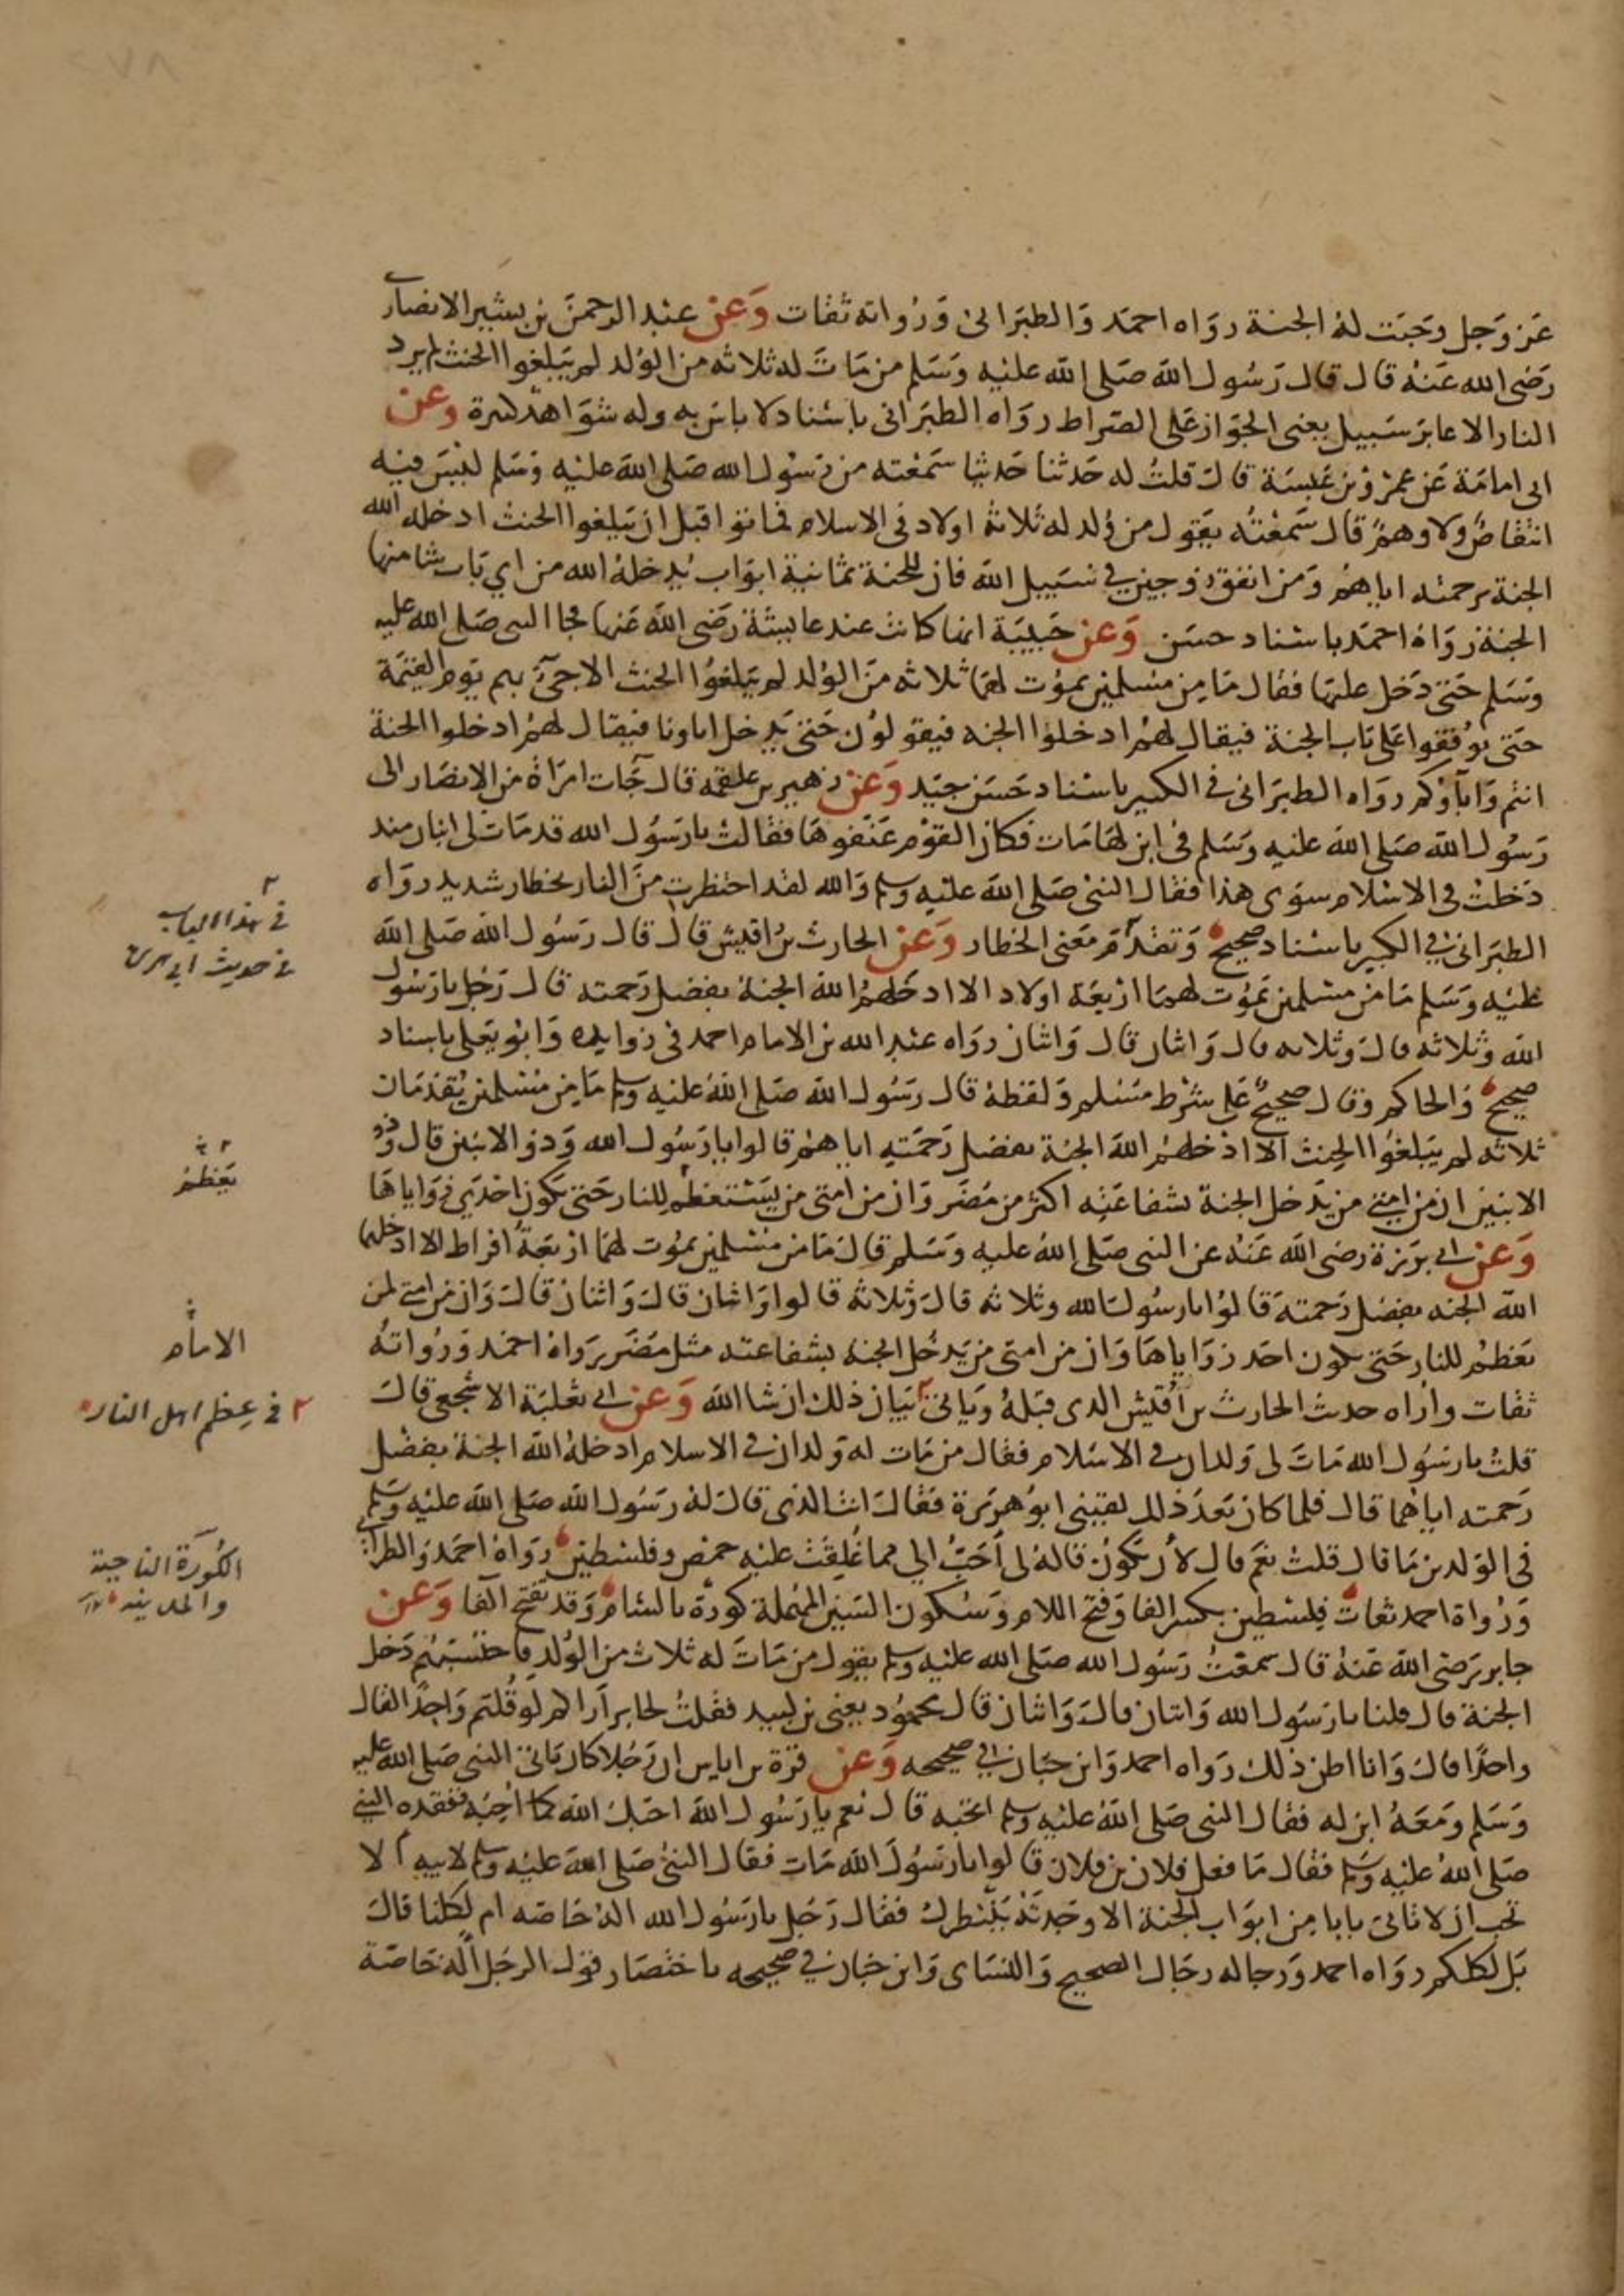 عز وجل وجبت له الجنة رواه احمد والطبراني ورواته ثقات وعن عبد الرحمن بن بشير الانصاري
رضي الله عنه قال قال رسول الله صلى الله عليه وسلم من مات له ثلاثه من الولد لم يبلغوا الحنث لم يرد
النار الا عابر سبيل يعني الجواز على الصراط رواه الطبراني باسناد لا باس به وله شواهد كثيرة وعن
ابي امامة عن عمرو بن عبسة قال قلت له حدثنا حديثا سمعته من رسول الله صلى الله عليه وسلم ليس فيه
انتقاص ولا وهم قال سمعته يقول من ولد له ثلاثة اولاد في الاسلام فماتوا قبل ان يبلغوا الحنث ادخله الله
الجنة برحمته اياهم ومن انفق زوجين في سبيل الله فان للجنة ثمانية ابواب يدخله الله من اي باب شا منها
الجنة رواه احمد باسناد حسن وعن حبيبة انها كانت عند عايشة رضي الله عنها فجا النبي صلى الله عليه
وسلم حتى دخل عليها فقال ما من مسلمين يموت لهما ثلاثه من الولد لم يبلغوا الحنث الا جيء بهم يوم القيمة
حتى يوقفوا على باب الجنة فيقال لهم ادخلوا الجنه فيقولون حتى يدخل اباونا فيقال لهم ادخلوا الجنة
انتم وآباؤكم رواه الطبراني في الكبير باسناد حسن جيد وعن زهير بن علقمه قال جآت امراة من الانصار الى
رسول الله صلى الله عليه وسلم في ابن لها مات فكان القوم عنفوها فقالت يا رسول الله قد مات لي ابنان منذ
دخلت في الاسلام سوى هذا فقال النبي صلى الله عليه وسلم والله لقد احتظرت من النار بحظار شديد رواه
الطبراني في الكبير باسناد صحيح وتقدم معنى الحظار وعن الحارث بن اقيش قال قال رسول الله صلى الله
عليه وسلم ما من مسلمين يموت لهما اربعة اولاد الا ادخلهم الله الجنة بفضل رحمته قال رجل يا رسول
الله وثلاثه قال وثلاثه قال واثنان قال واثنان رواه عبد الله بن الامام احمد في زوايده وابو يعلى باسناد
صحيح والحاكم وقال صحيح على شرط مسلم ولفظه قال رسول الله صلى الله عليه وسلم ما من مسلمين يقدمان
ثلاثه لم يبلغوا الحنث الا ادخلهم الله الجنة بفضل رحمته اياهم قالوا يا رسول الله وذو الاثنين قال وذو
الاثنين ان من امتي من يدخل الجنة بشفاعته اكثر من مضر وان من امتي من يستعظم للنار حتى يكون احدي زواياها
وعن ابي برزة رضي الله عنه عن النبي صلى الله عليه وسلم قال ما من مسلمين يموت لهما اربعة افراط الا ادخلهما
الله الجنه بفضل رحمته قالوا يا رسول الله وثلاثه قال وثلاثه قالوا واثنان قال واثنان قال وان من امتي لمن
يعظم للنار حتى يكون احد زواياها وان من امتي من يدخل الجنه بشفاعته مثل مضر رواه احمد ورواته
ثقات واراه حديث الحارث بن اقيش الذي قبله وياتي بيان ذلك ان شا الله وعن ابي ثعلبة الاشجعي قال
قلت يا رسول الله مات لي ولدان في الاسلام فقال من مات له ولدان في الاسلام ادخله الله الجنة بفضل
رحمته اياهما قال فلما كان بعد ذلك لقيني ابو هريرة فقال انت الذي قال له رسول الله صلى الله عليه وسلم
في الولدين ما قال قلت نعم قال لأن يكون قاله لي أحب الي مما غلقت عليه حمص وفلسطين رواه احمد والطبراني
ورواة احمد ثقات فلسطين بكسر الفا وفتح اللام وسكون السين المهملة كورة بالشام وقد تفتح الفا وعن
جابر رضي الله عنه قال سمعت رسول الله صلى الله عليه وسلم يقول من مات له ثلاث من الولد فاحتسبهم دخل
الجنة قال قلنا يا رسول الله واثنان قال واثنان قال محمود يعني بن لبيد فقلت لجابر أراكم لو قلتم واحدا لقال
واحدا قال وانا اظن ذلك رواه احمد وابن حبان في صحيحه وعن قرة بن اياس ان رجلا كان ياتي النبي صلى الله عليه
وسلم ومعه ابن له فقال النبي صلى الله عليه وسلم اتحبه قال نعم يا رسول الله احبك الله كما أحبه ففقده النبي
صلى الله عليه وسلم فقال ما فعل فلان بن فلان قالوا يا رسول الله مات فقال النبي صلى الله عليه وسلم لابيه الا
تحب ان لا تاتي بابا من ابواب الجنة الا وجدته ينتظرك فقال رجل يا رسول الله اله خاصه ام لكلنا قال
بل لكلكم رواه احمد ورجاله رجال الصحيح والنسائي وابن حبان في صحيحه باختصار قول الرجل أله خاصة
في هذا الباب
في حديث ابي هريرة
يعظم
الامام
في عظم اهل النار
الكورة الناحية
والمدينه